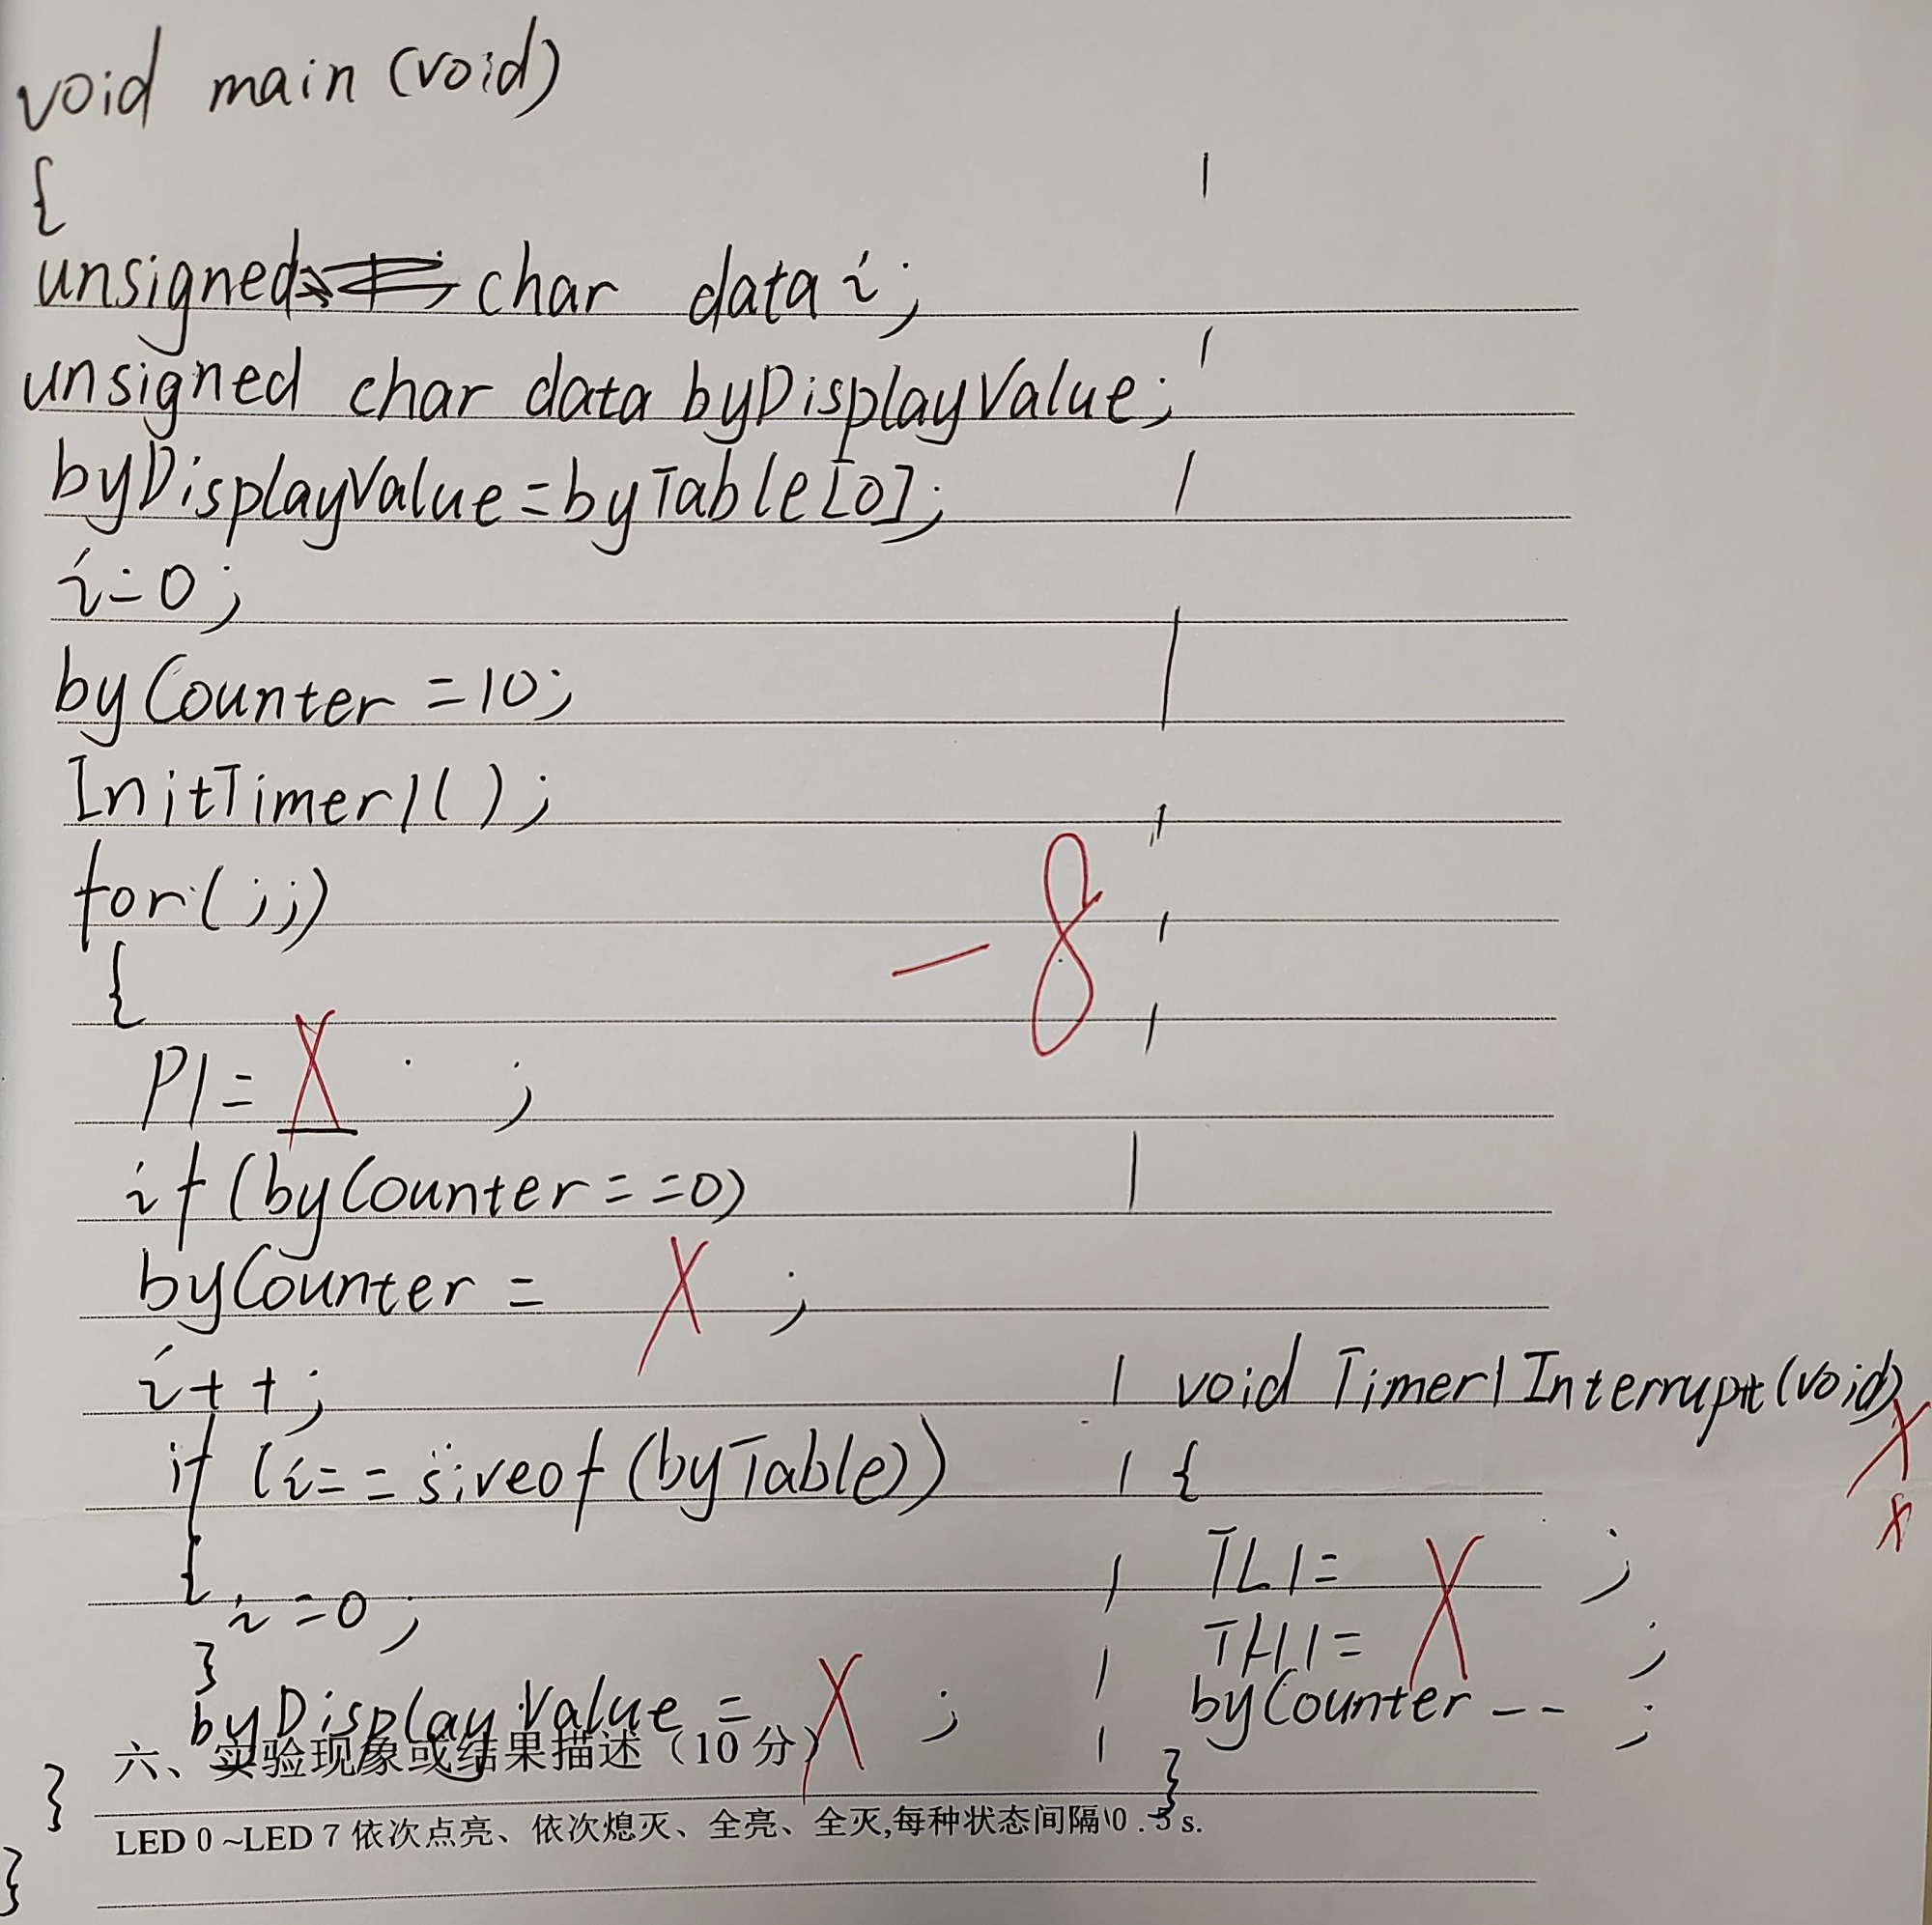 void main (void)
{
unsigned char data i;
unsigned char data byDisplayValue;
byDisplayValue=byTable[0];
i=0;
byCounter =10;
InitTimer1();
for(;;)
{
-8
P1= X ;
if (byCounter==0)
byCounter = X ;
i++;
if (i==siveof(byTable))
{
i=0;
}
byDisplayValue = X ;
}
}
void Timer1Interrupt(void)
X
{
X
TL1= X ;
TH1= ;
byCounter-- ;
}
六、实验现象或结果描述（10 分）
LED 0 ~LED 7 依次点亮、依次熄灭、全亮、全灭,每种状态间隔\0 . 5 s.